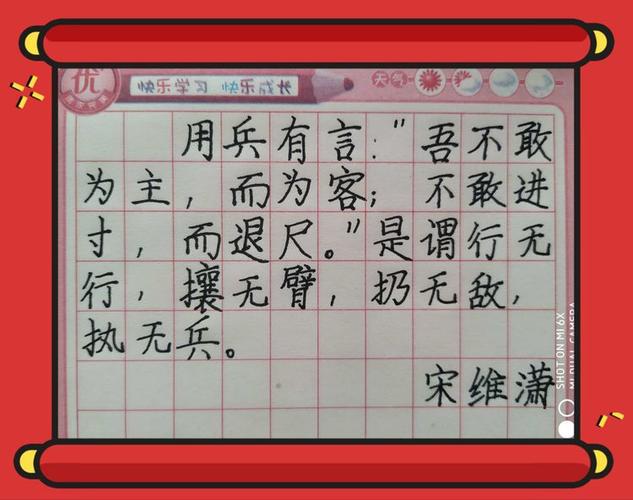 优
快乐学习 快乐成长
天气
用兵有言："吾不敢
为主，而为客；不敢进
寸，而退尺。"是谓行无
行，攘无臂，扔无敌，
执无兵。
宋维潇
SHOT ON MI 6X
MI DUAL CAMERA